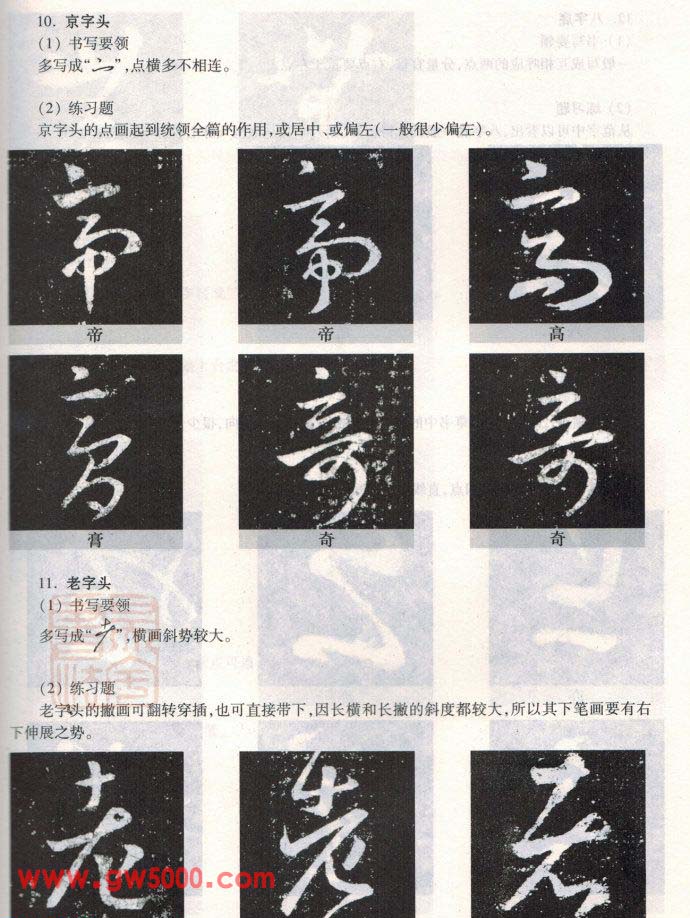 10. 京字头
(1) 书写要领
多写成“亠”，点横多不相连。
(2) 练习题
京字头的点画起到统领全篇的作用，或居中、或偏左(一般很少偏左)。
帝 帝 高
帝 帝 高
膏 奇 奇
膏 奇 奇
11. 老字头
(1) 书写要领
多写成“耂”，横画斜势较大。
(2) 练习题
老字头的撇画可翻转穿插，也可直接带下，因长横和长撇的斜度都较大，所以其下笔画要有右
下伸展之势。
老 老 老
www.gw5000.com